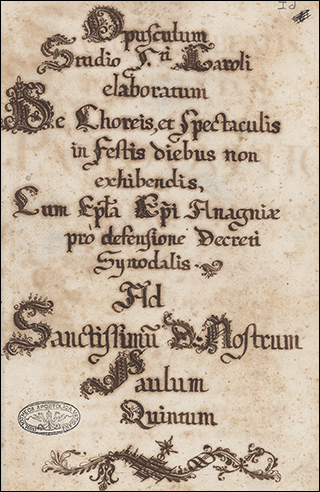 Id
Opusculum
Studio S.ti Caroli
elaboratum
De Choreis, et Spectaculis
in Festis diebus non
exhibendis,
Cum Epl̃a Epĩ Anagniæ
prò defensione Decreti
Synodalis.
Ad
Sanctissimũ D. Nostrum
Paulum
Quintum